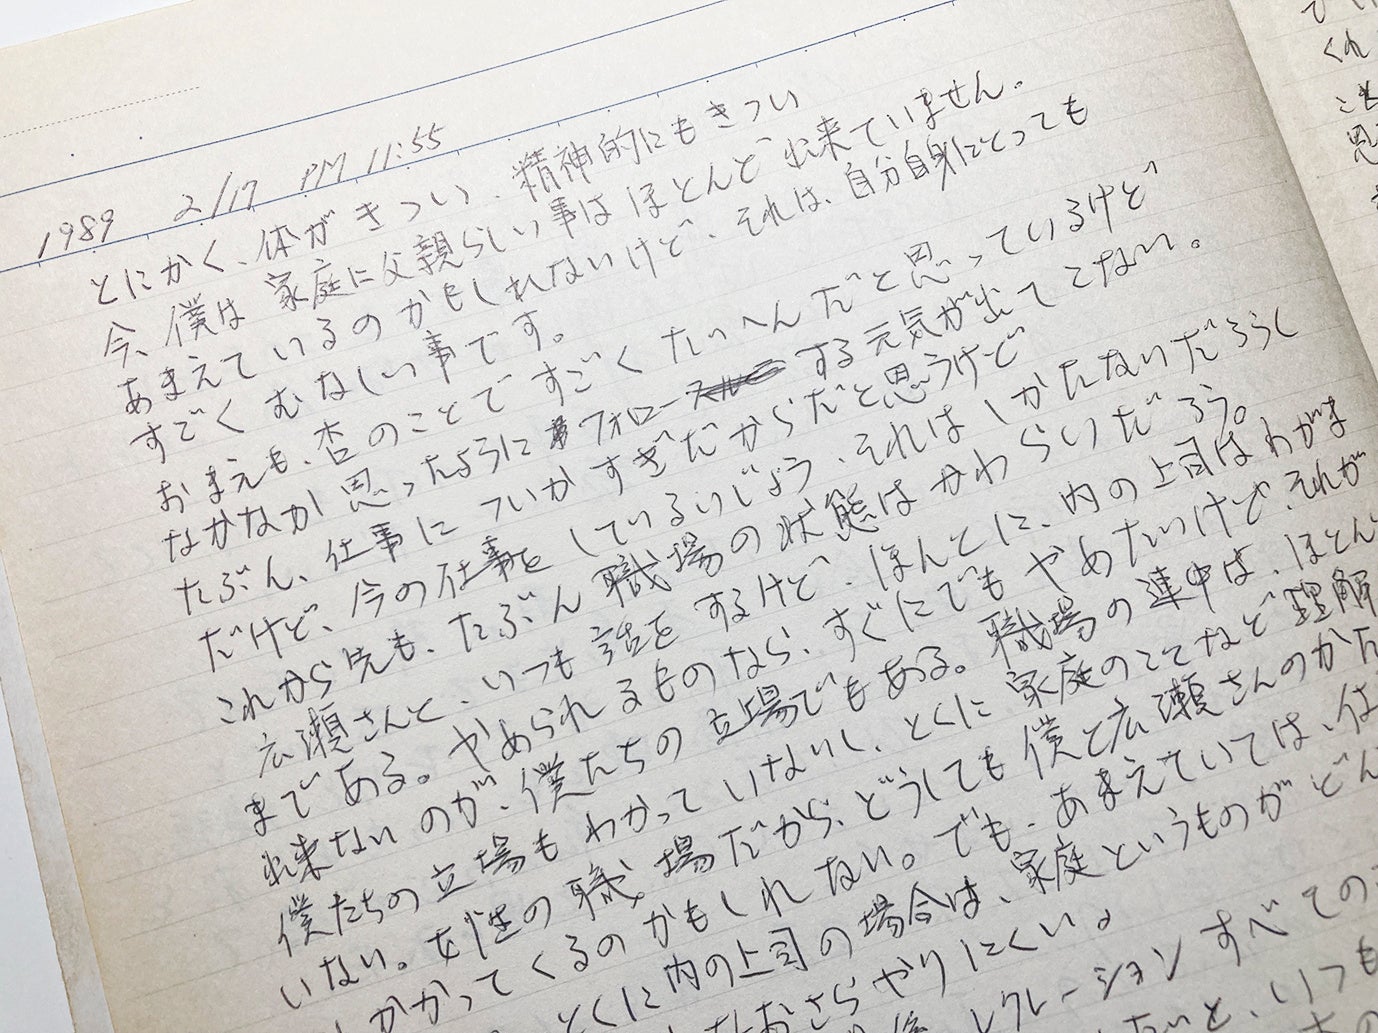 1989 2/17 PM 11:55
とにかく、体がきつい、精神的にもきつい
今、僕は家庭に父親らしい事はほとんど出来ていません。
あまえているのかもしれないけど、それは、自分自身にとっても
すごくむなしい事です。
おまえも、杏のことですごくたいへんだと思っているけど
なかなか思ったようにフォローする元気が出てこない。
たぶん、仕事についかすぎだからだと思うけど
だけど、今の仕事をしているいじょう、それはしかたないだろうし
これから先も、たぶん職場の状態はかわらいだろう。
広瀬さんと、いつも話をするけど、ほんとに、内の上司はわがま
まである。やめられるものなら、すぐにでもやめたいけど、それが
出来ないのが、僕たちの立場でもある。職場の連中は、ほとん
僕たちの立場もわかっていないし、とくに家庭のことなど理解
いない。女性の職場だから、どうしても僕と広瀬さんのかた
かかってくるのかもしれない。でも、あまえていては、仕
とくに内の上司の場合は、家庭というものがどん
なおさらやりにくい。
レクレーションすべての
いつも
くれ
思